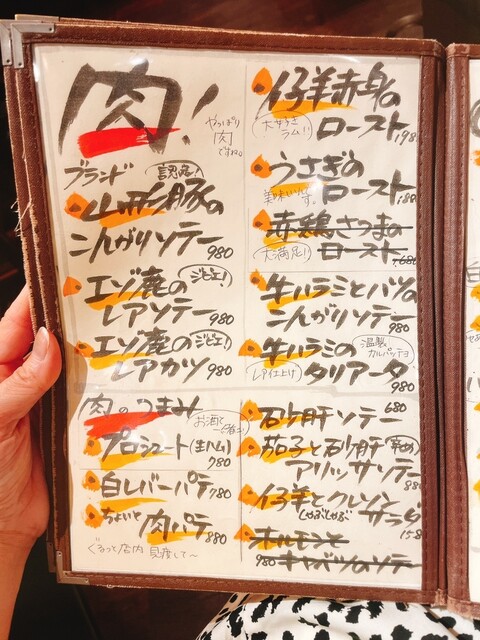 肉!
やっぱり
肉
ですね。
ブランド 認定!
山形豚の
こんがりソテー 980
エゾ鹿の ジビエ!
レアソテー 980
エゾ鹿の ジビエ!
レアカツ 980
肉のつまみ
お酒で
プロシュート(生ハム)
780
白レバーパテ 780
ちょいと 肉パテ
880
ぐるっと店内 見渡して〜
仔羊赤身の
ロースト
大好きラム!!
うさぎの
ロースト
美味いんす。
赤鶏さつまの
ロースト
大満足!
1,680
牛ハラミとハツの
こんがりソテー
980
牛ハラミの
タリアータ
温製カルパッチョ
レア仕上げ
980
砂肝ソテー 680
茄子と砂肝(辛め)
アリッサソテー
880
仔羊とクレソン
しゃぶしゃぶ サラダ
158
ホルモンと
980 キャベツのソテー